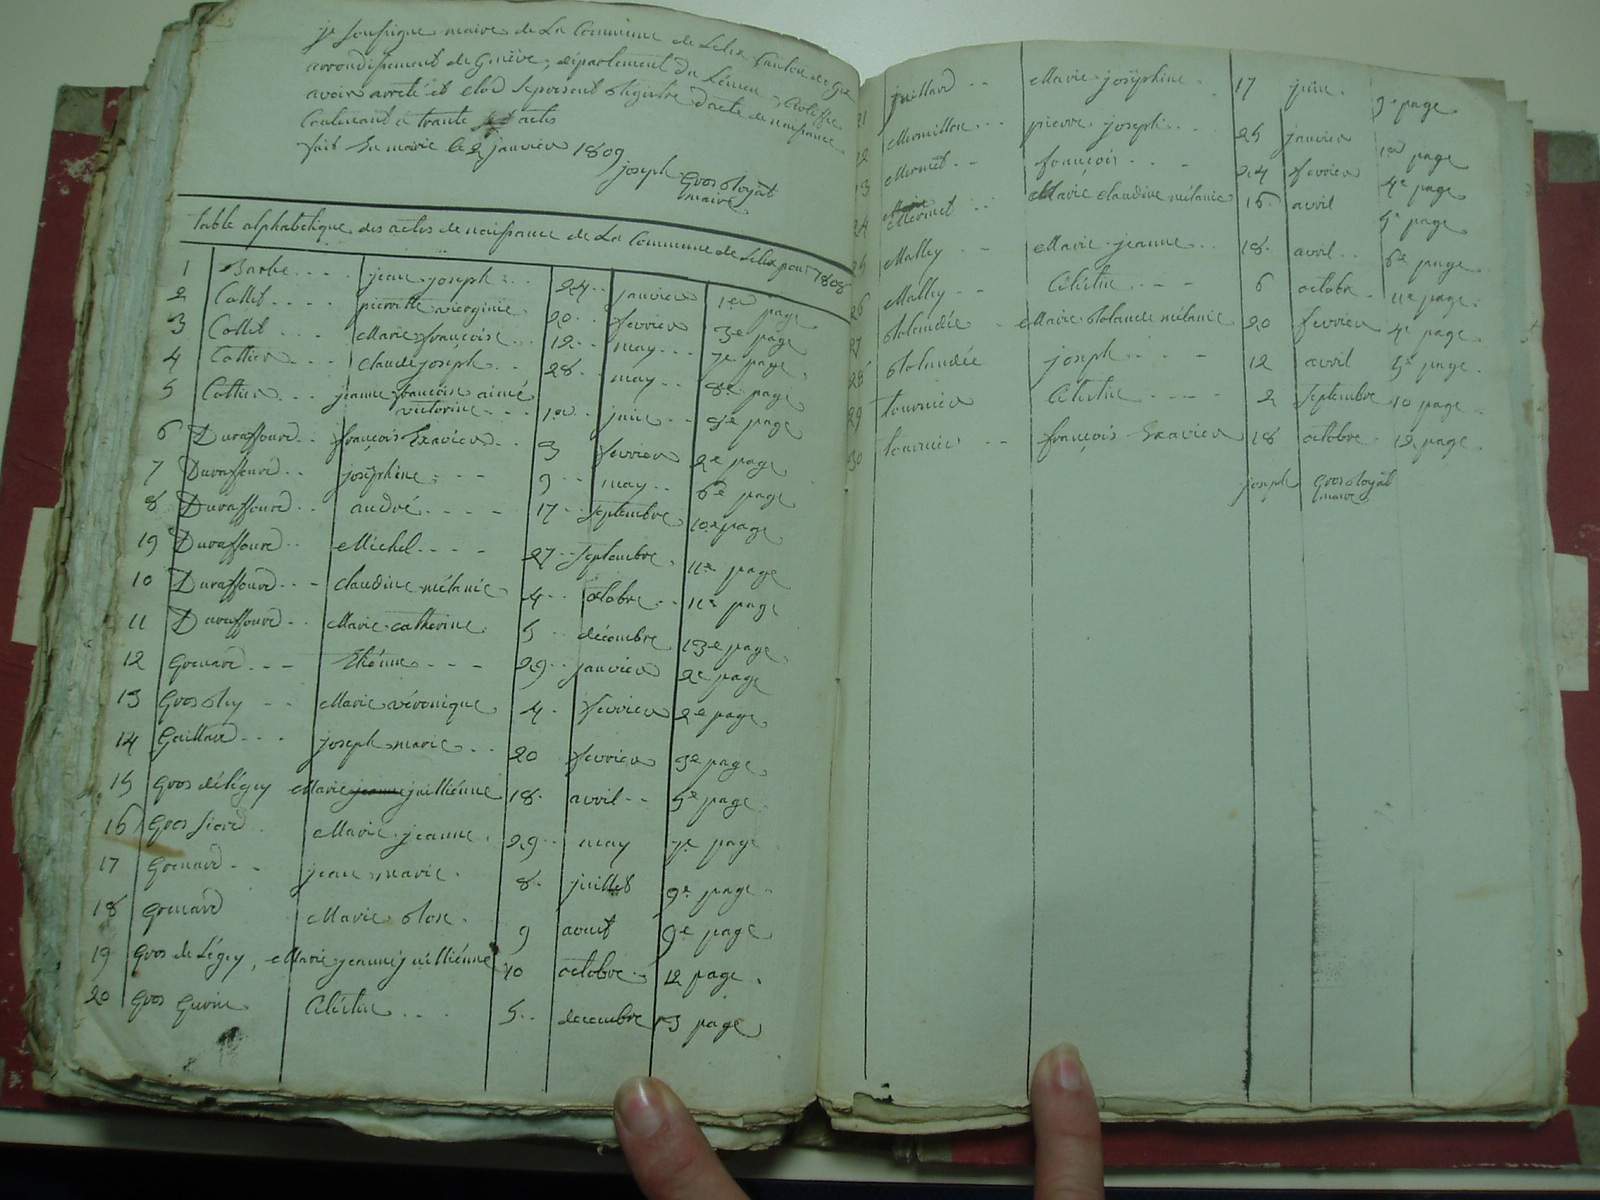 je soussigne maire de La Commune de Lelex Canton de Gex
arrondissement de Genève, département du Léman,
avoir arreté et clod le present régistre d'acte de naissance
Contenant trante actes
fait En mairie le 2 janvier 1809
joseph grosroyat
maire
table alphabetique des actes de naissance de La Commune de Lelex pour 1808
1 Barbe jean joseph 24 janvier 1er page
2 Collet pierrette vierginie 20 fevrier 3e page
3 Collet Marie françoise 12 may 7e page
4 Cottier claude joseph 28 may 8e page
5 Cottier jeanne françoise aimé
victorine 1er juin 8e page
6 Duraffourd françois Exavier 3 fevrier 2e page
7 Duraffourd joséphine 9 may 6e page
8 Duraffourd andré 17 septembre 10e page
19 Duraffourd Michel 27 septembre 11e page
10 Duraffourd claudine mélanie 4 octobre 11e page
11 Duraffourd Marie catherine 5 décembre 13e page
12 Grenard Etiénne 29 janvier 2e page
13 Gros Marie véronique 4 fevrier 2e page
14 Guillard joseph marie 20 fevrier 3e page
15 gros délégey Marie jeanne juilliénne 18 avril 5e page
16 gros fierd Marie jeanne 29 may 7e page
17 grenard jean marie 8 juillet 9e page
18 grenard Marie Rose 9 aout 9e page
19 gros de Légey, Marie jeanne juilliénne 10 octobre 12 page
20 gros gurin Céléstin 5 decembre 13 page
21 juillard Marie joséphine 17 juin 9e page
22 Mermillon pierre joseph 25 janvier 1er page
23 Mermet françois 24 fevrier 4e page
24 Mermet Marie claudine mélanie 16 avril 5e page
25 Malley Marie jeanne 18 avril 6e page
26 Malley Céléstin 6 octobre 11e page
27 Rolandée Marie Rolande mélanie 20 fevrier 4e page
28 Rolandée joseph 12 avril 5e page
29 tournier Céléstin 2 septembre 10 page
30 tournier françois Exavier 18 octobre 12 page
joseph grosroyat
maire